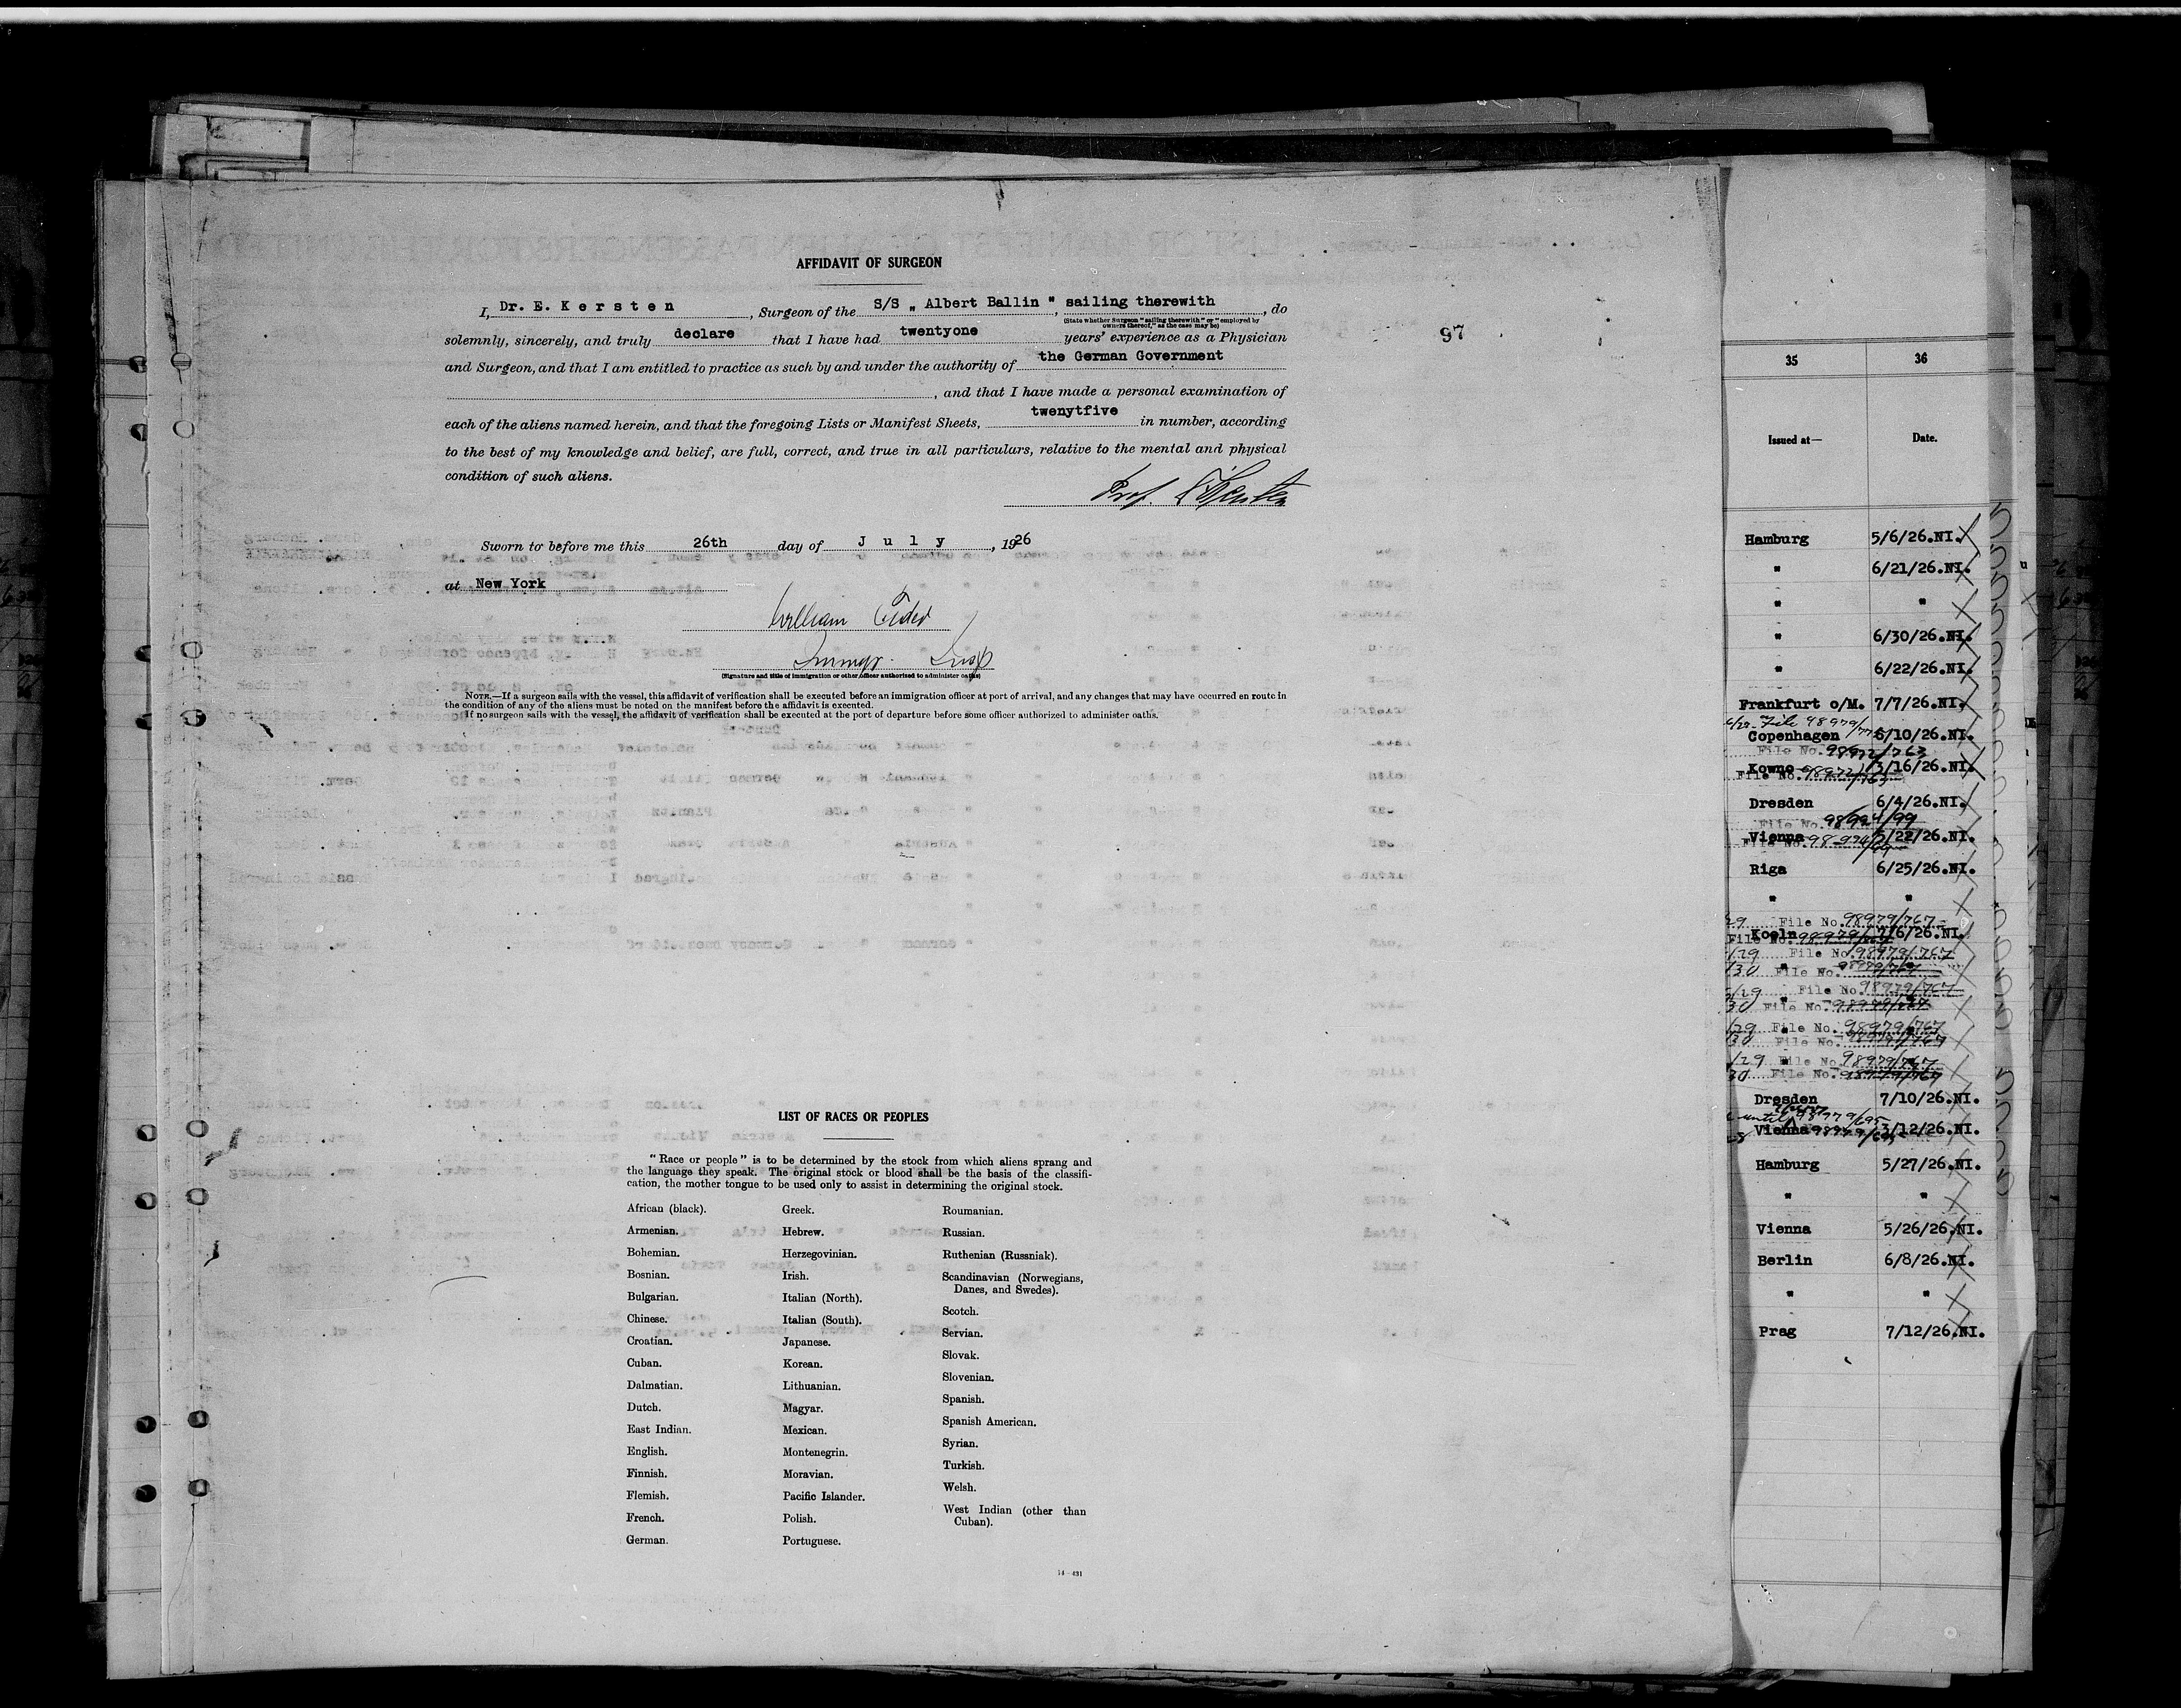 AFFIDAVIT OF SURGEON
I, Dr. E. Kersten, Surgeon of the S/S „ Albert Ballin " , sailing therewith, do
(State whether Surgeon "sailing therewith" or "employed by
owners thereof," as the case may be)
solemnly, sincerely, and truly declare that I have had twentyone years' experience as a Physician
and Surgeon, and that I am entitled to practice as such by and under the authority of the German Government
, and that I have made a personal examination of
each of the aliens named herein, and that the foregoing Lists or Manifest Sheets, twenytfive in number, according
to the best of my knowledge and belief, are full, correct, and true in all particulars, relative to the mental and physical
condition of such aliens.
Prof.
Sworn to before me this 26th day of July, 1926
at New York
William
Immgr. Insp
(Signature and title of immigration or other officer authorized to administer oaths)
NOTE.—If a surgeon sails with the vessel, this affidavit of verification shall be executed before an immigration officer at port of arrival, and any changes that may have occurred en route in
the condition of any of the aliens must be noted on the manifest before the affidavit is executed.
If no surgeon sails with the vessel, the affidavit of verification shall be executed at the port of departure before some officer authorized to administer oaths.
97
LIST OF RACES OR PEOPLES
"Race or people" is to be determined by the stock from which aliens sprang and
the language they speak. The original stock or blood shall be the basis of the classifi-
cation, the mother tongue to be used only to assist in determining the original stock.
African (black).
Armenian.
Bohemian.
Bosnian.
Bulgarian.
Chinese.
Croatian.
Cuban.
Dalmatian.
Dutch.
East Indian.
English.
Finnish.
Flemish.
French.
German.
Greek.
Hebrew.
Herzegovinian.
Irish.
Italian (North).
Italian (South).
Japanese.
Korean.
Lithuanian.
Magyar.
Mexican.
Montenegrin.
Moravian.
Pacific Islander.
Polish.
Portuguese.
Roumanian.
Russian.
Ruthenian (Russniak).
Scandinavian (Norwegians,
Danes, and Swedes).
Scotch.
Servian.
Slovak.
Slovenian.
Spanish.
Spanish American.
Syrian.
Turkish.
Welsh.
West Indian (other than
Cuban).
14—431
35 36
Issued at— Date.
Hamburg 5/6/26.NI.
" 6/21/26.NI.
" "
" 6/30/26.NI.
" 6/22/26.NI.
Frankfurt o/M. 7/7/26.NI.
File 98979/
Copenhagen 6/10/26.NI.
File No. 98972/763
Kowno 3/16/26.NI.
File No. 98972/763
Dresden 6/4/26.NI.
File No. 98924/99
Vienna 5/22/26.NI.
File No. 98924/99
Riga 6/25/26.NI.
" "
29 File No. 98979/767
Koeln 7/6/26.NI.
File No. 98979/767
/29 File No. 98979/767
/30 File No. 98979/767
/29 File No. 98979/767
30 File No. 98979/767
/29 File No. 98979/767
/30 File No. 98979/767
/29 File No. 98979/767
30 File No. 98979/767
Dresden 7/10/26.NI.
until 98979/695
Vienna 3/12/26.NI.
Hamburg 5/27/26.NI.
" "
Vienna 5/26/26.NI.
Berlin 6/8/26.NI.
" "
Prag 7/12/26.NI.